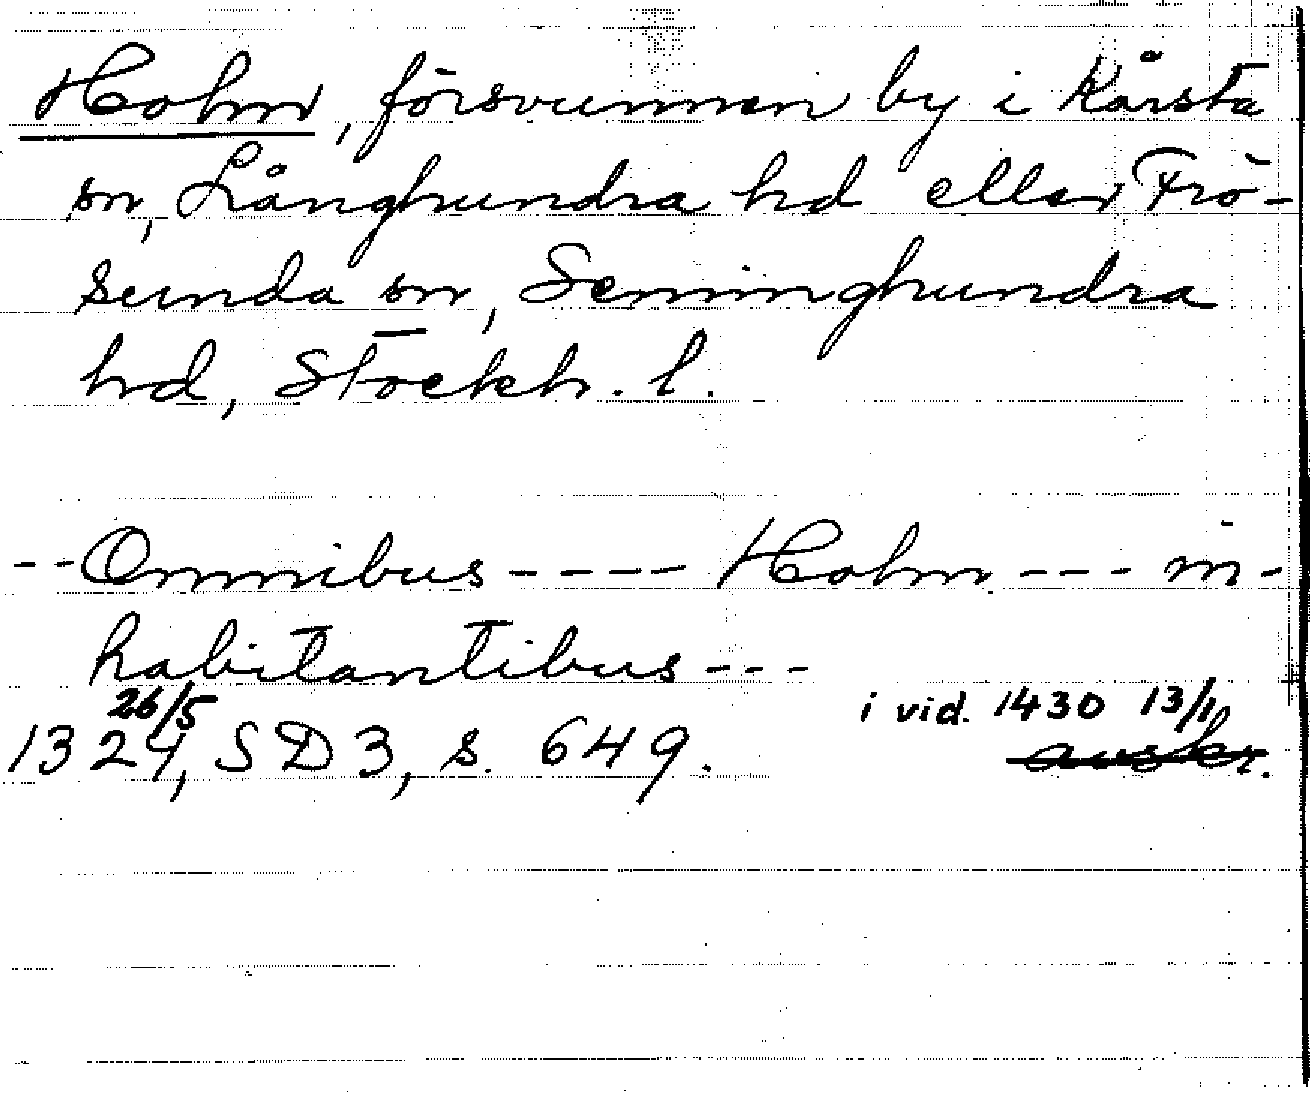 Holm, försvunnen by i Kårsta
sn, Långhundra hd eller Frö-
sunda sn, Seminghundra
hd, Stockh. l.
--Omnibus ---- Holm --- in-
habitantibus ---
26/5
i vid. 1430 13/1
1324, SD 3, s. 649.
avskr.